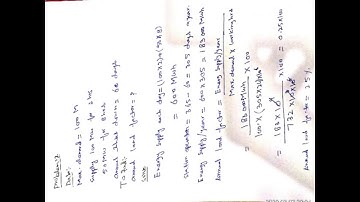 Problem:2
Data:
Max. demand = 100 M
Supply 100 MW for 2 hrs
50 MW for 8 hrs
annual shut down = 60 days
To find:
annual load factor = ?
Energy supply each day = (100x2)+(50x8)
= 600 MWh
Station operation = 365 - 60 = 305 days a year
Energy supply/year = 600 x 305 = 183000 MWh
Annual load factor = Energy supply/year
Max. demand x working hrs
= 183000 MWh x 100
100 x (305x24)
x100 = 0.25x100
Annual load factor = 25%